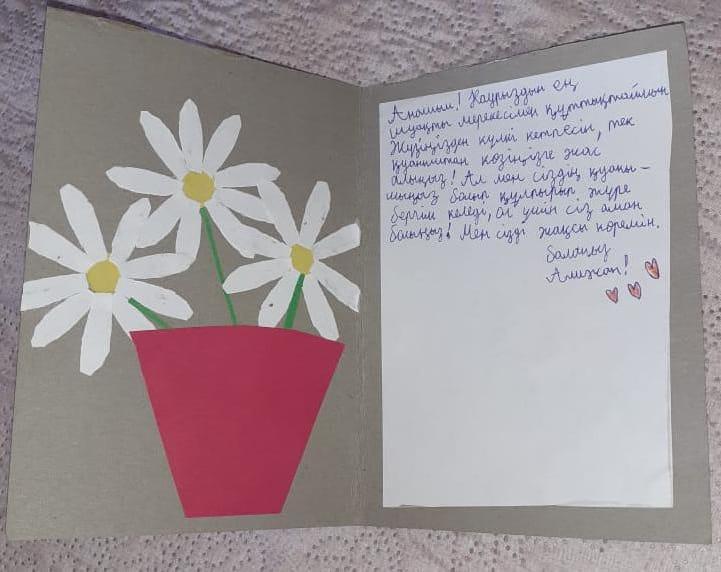 Анашым! Наурыздың ең
шуақты мерекесімен құттықтаймын
Жүзіңізден күлкі кетпесін, тек
қуаныштан көзіңізге жас
алыңыз! Ал мен сіздің қуаны-
шыңыз болып құлпырып жүре
бергім келеді, ол үшін сіз аман
болыңыз! Мен сізді жақсы көремін.
Балаңыз
Алижан!